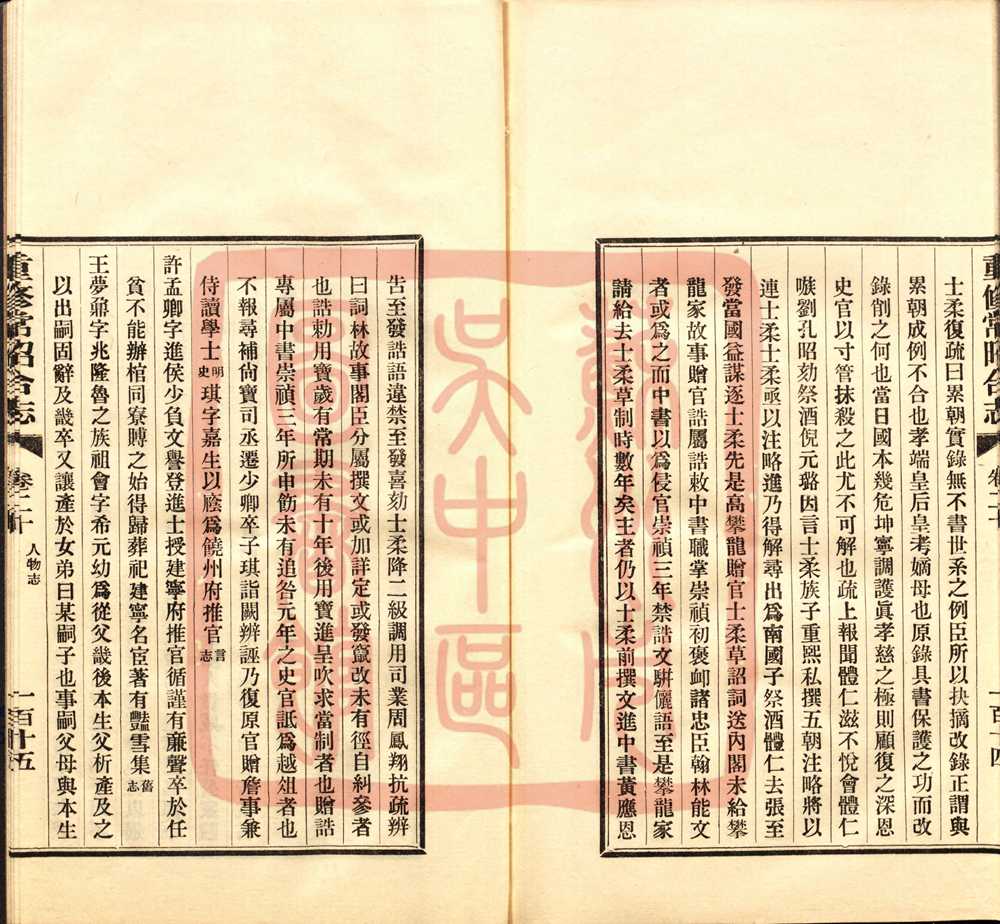 重修常昭合志
卷二十
一百十四
士柔復疏曰累朝實錄無不書世系之例臣所以抉摘改錄正謂與
累朝成例不合也孝端皇后皇考嫡母也原錄具書保護之功而改
錄削之何也當日國本幾危坤寧調護眞孝慈之極則顧復之深恩
史官以寸管抹殺之此尤不可解也疏上報聞體仁滋不悅會體仁
嗾劉孔昭劾祭酒倪元璐因言士柔族子重熙私撰五朝注略將以
連士柔士柔亟以注略進乃得解尋出爲南國子祭酒體仁去張至
發當國益謀逐士柔先是高攀龍贈官士柔草詔詞送內閣未給攀
龍家故事贈官誥屬誥敕中書職掌崇禎初褒卹諸忠臣翰林能文
者或爲之而中書以爲侵官崇禎三年禁誥文駢儷語至是攀龍家
請給去士柔草制時數年矣主者仍以士柔前撰文進中書黃應恩
告至發誥語違禁至發喜劾士柔降二級調用司業周鳳翔抗疏辨
曰詞林故事閣臣分屬撰文或加詳定或發竄改未有徑自糾參者
也誥勅用寶歲有常期未有十年後用寶進呈吹求當制者也贈誥
專屬中書崇禎三年所申飭未有追咎元年之史官詆爲越俎者也
不報尋補尙寶司丞遷少卿卒子琪詣闕辨誣乃復原官贈詹事兼
侍讀學士明史琪字嘉生以廕爲饒州府推官言志
許孟卿字進侯少負文譽登進士授建寧府推官循謹有廉聲卒於任
貧不能辦棺同寮賻之始得歸葬祀建寧名宦著有豔雪集舊志
王夢鼐字兆隆魯之族祖會字希元幼爲從父畿後本生父析產及之
以出嗣固辭及畿卒又讓產於女弟曰某嗣子也事嗣父母與本生
重修常昭合志
卷二十
人物志
一百十五
蘇州市
吳中區
圖書館